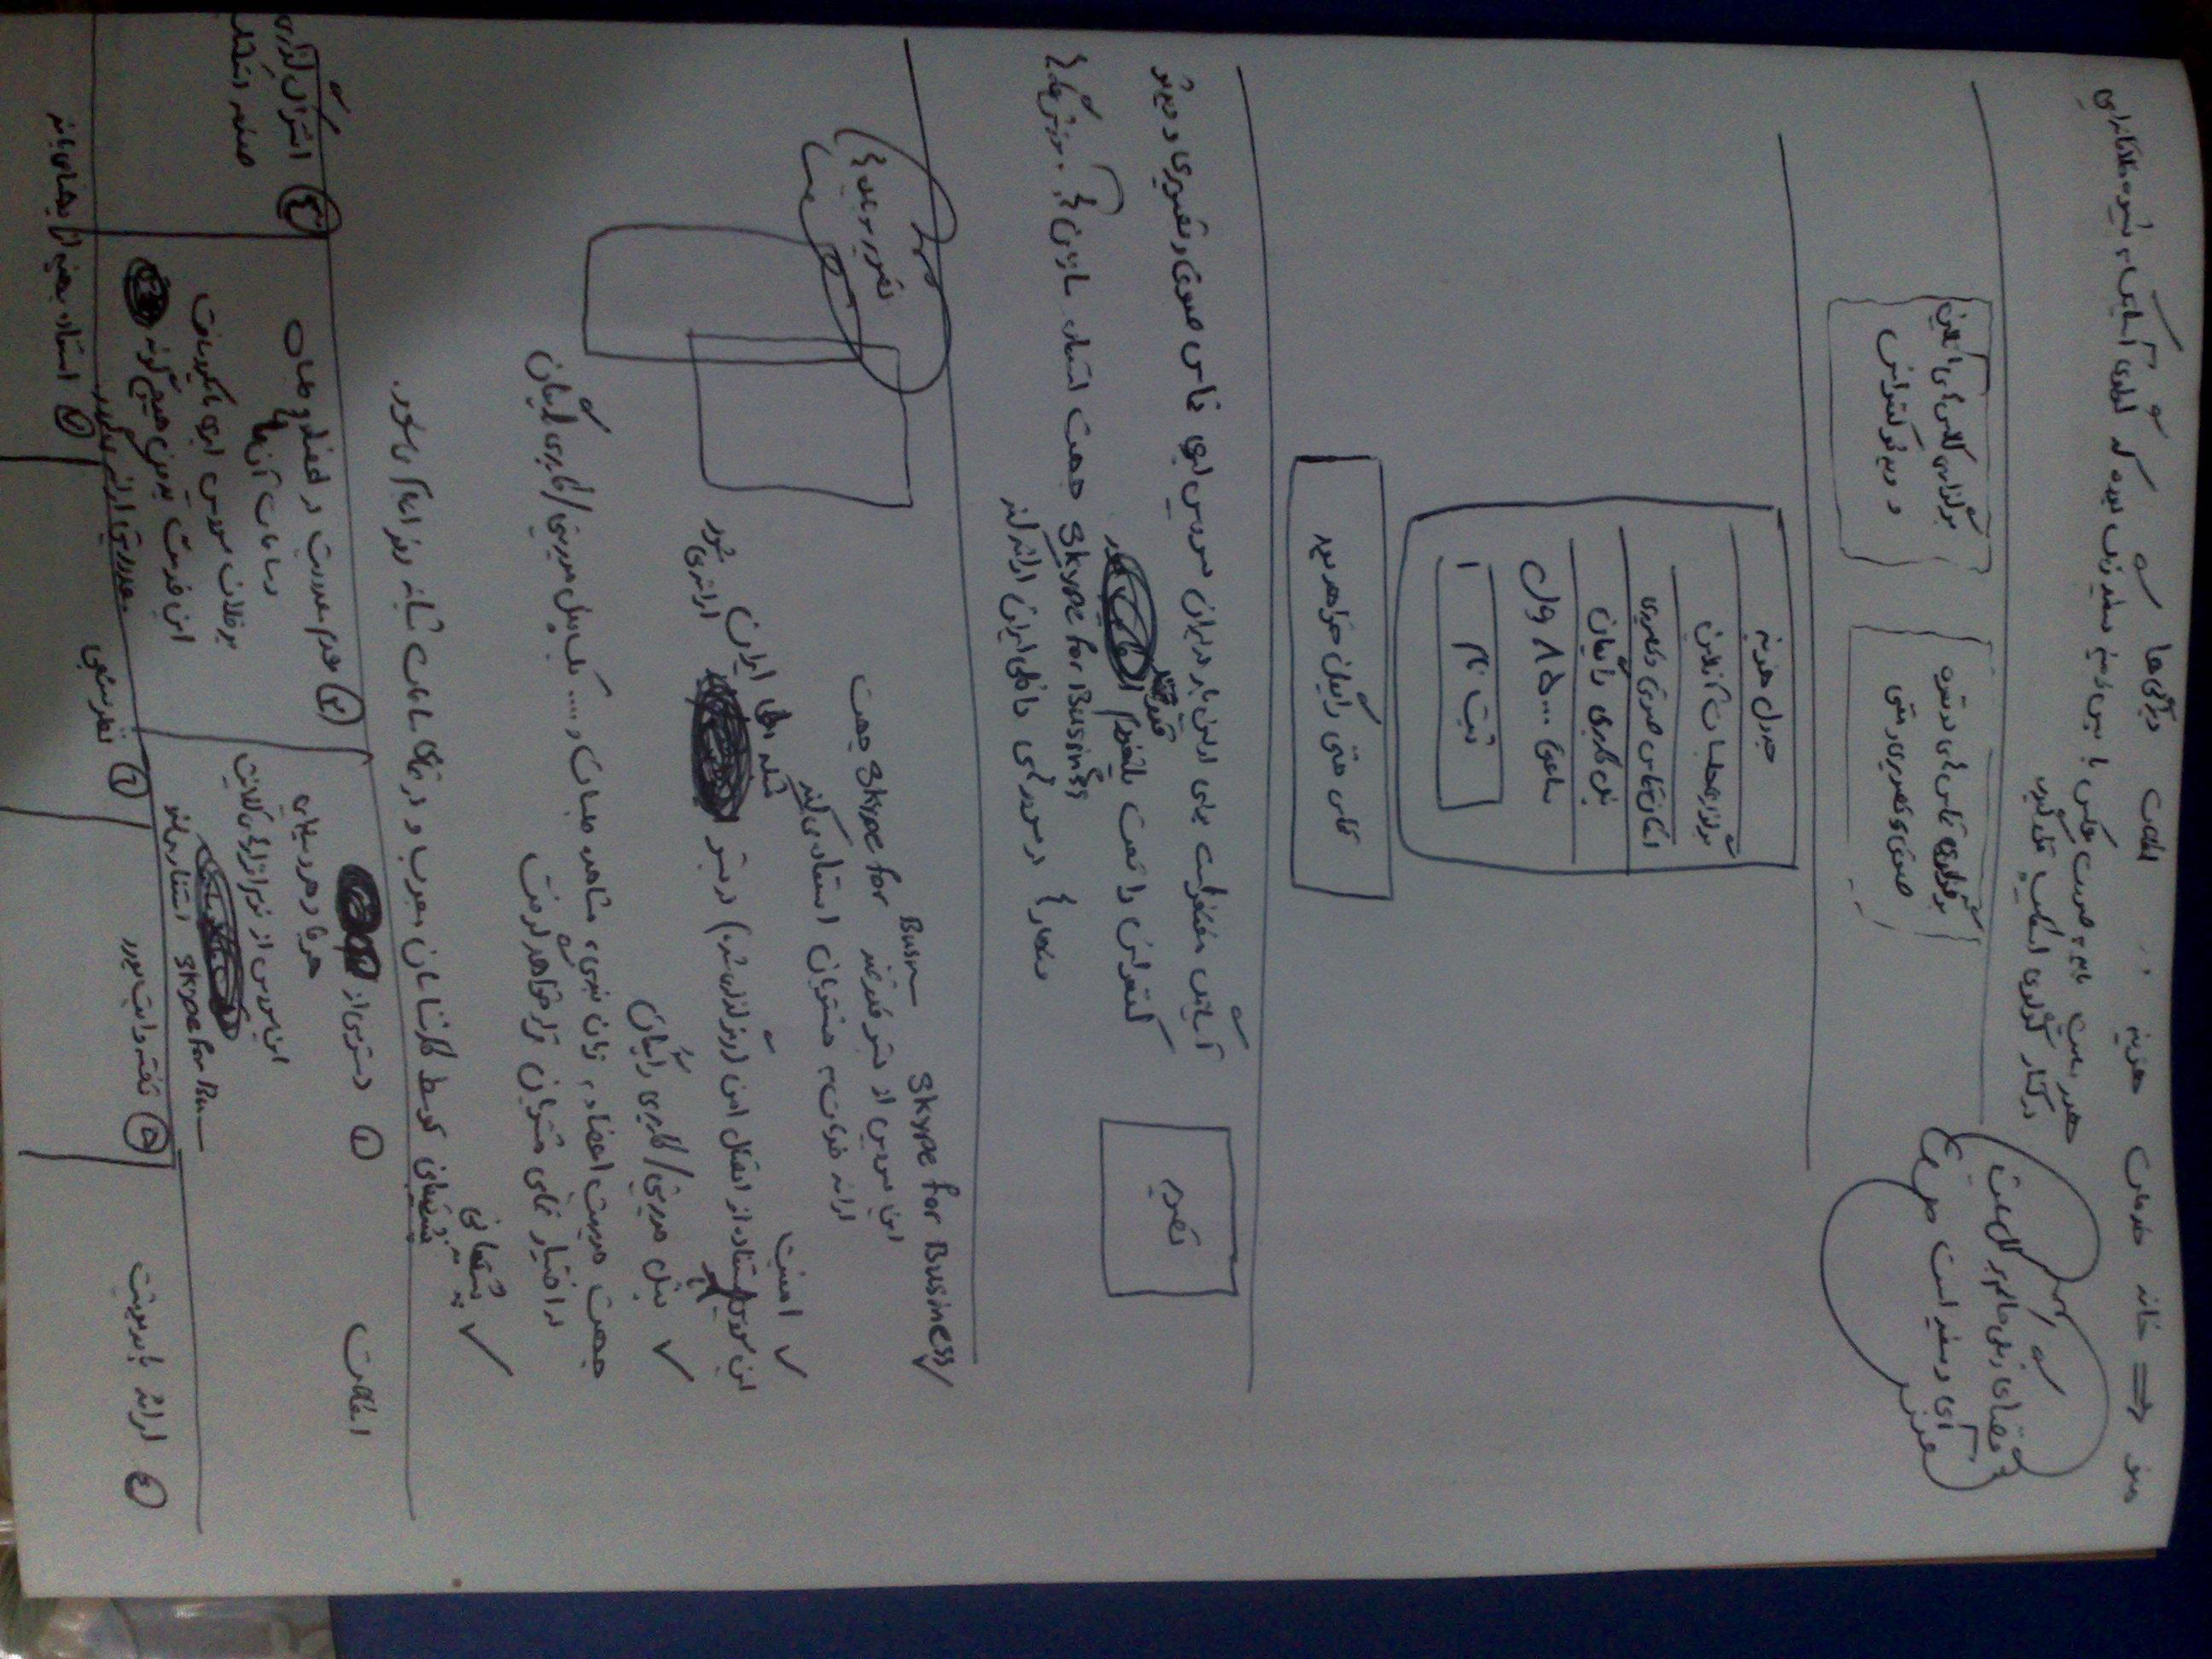 منو ⇒ خانه خدمات هزینه ... امکانات ویژگی ها
هدر سایت باید به صورت عکس با پس زمینه سفید رنگ بوده که لوگوی آسیاتک به شیوه خلاقانه ایی
در کنار لوگوی اسکایپ قرار گیرد
فضای رنگی حاکم بر کل سایت
آبی و سفید است
برگزاری تماس های دو نفره
صوتی و تصویری و متنی
برگزاری کلاس های آنلاین
و ویدئو کنفرانس
جدول هزینه
برگزاری جلسات آنلاین
امکان تماس صوتی و تصویری
پنل کاربری رایگان
ساعتی ۸۵۰۰۰ ریال
ثبت نام
تماس متنی رایگان خواهد بود
تصویر
آسیاتک مفتخر است برای اولین بار در ایران سرویس ابری تماس صوتی و تصویری و ویدئو
کنفرانس را تحت پلتفورم قدرتمند
Skype for Business جهت استفاده سازمان ها، آموزشگاه ها
و در سرورهای داخلی ایران ارائه کند
تصویر موبایل ها
✓ Skype for Business
این سرویس از بستر قدرتمند Skype for Busn جهت
ارائه خدمات به مشتریان استفاده می کند
✓ امنیت
این سرویس با استفاده از اتصال امن (رمزگذاری شده) در بستر شبکه ایران ارائه می شود
✓ پنل مدیریتی/کاربری رایگان
جهت مدیریت اعضاء، زمان بندی، مشاهده جلسات و .... یک پنل مدیریتی/کاربری رایگان
در اختیار تمامی مشتریان قرار خواهد گرفت
✓ پشتیبانی
پشتیبانی توسط کارشناسان مجرب و در تمامی ساعات شبانه روز انجام می شود.
امکانات
① دسترسی از
هر جا و هر وسیله ایی
این سرویس از نرم افزارهای کلاینت
Skype for Bu استفاده می کند
② عدم محدودیت در اعضاء و جلسات
و ساعات آن ها
بر خلاف سرویس ابری مایکروسافت
این خدمت بدون هیچ گونه
محدودیتی ارائه می گردد.
③ اشتراک گذاری
صفحه دسکتاپ
④ ارائه پاورپوینت
⑤ تخته وایت بورد
⑥ نظرسنجی
⑦ استفاده بهینه از پهنای باند